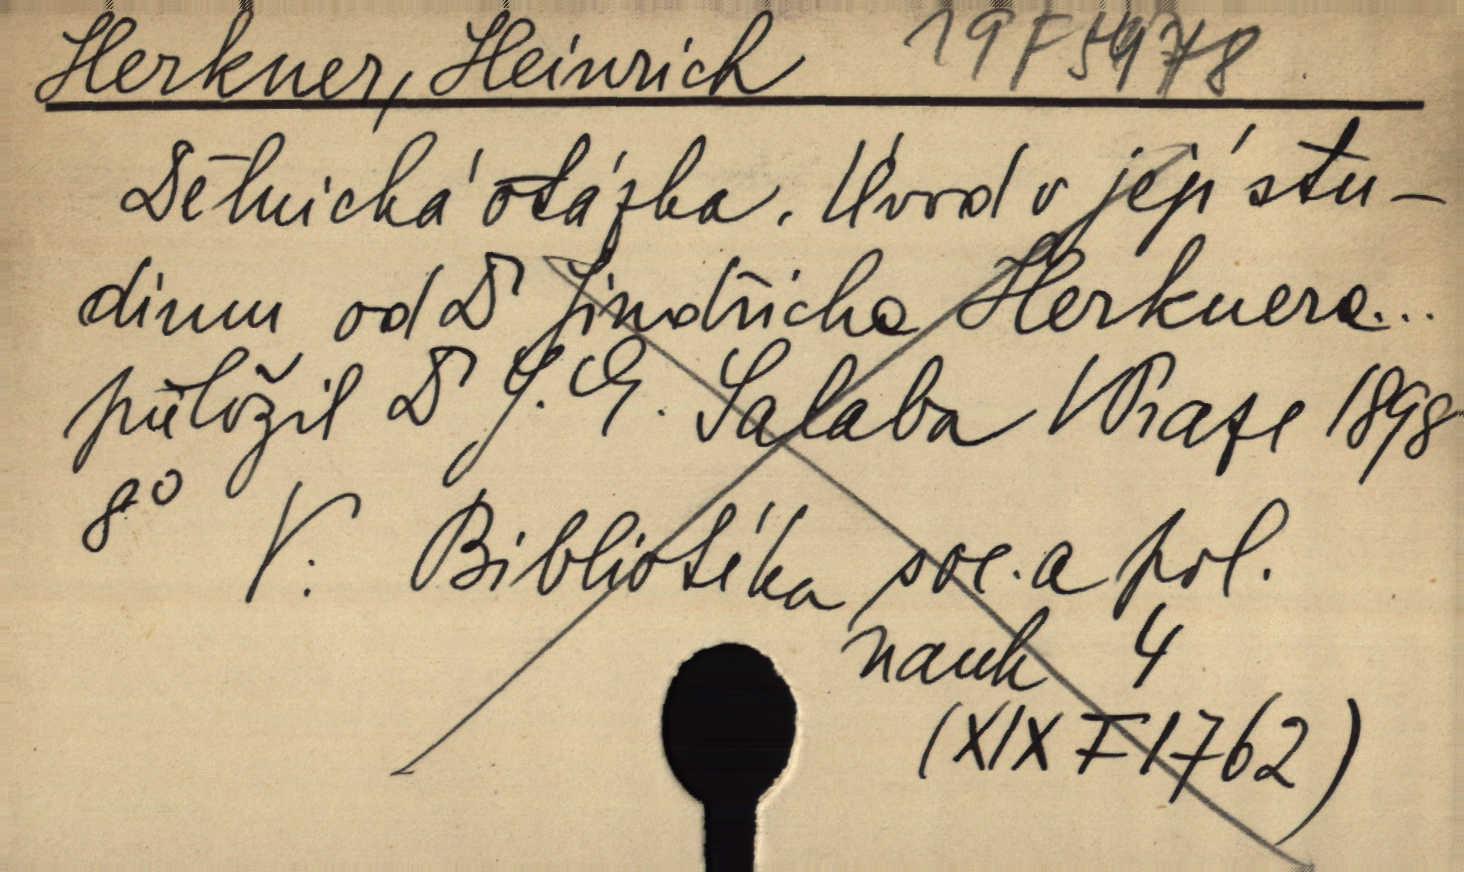 Herkner, Heinrich 19 F 5978
Dělnická otázka. Úvod v její stu-
dium od Dr Jindřicha Herknera...
přeložil Dr J. G. Salaba V Praze 1898
8°
V. Bibliotéka soc. a pol.
nauk 4
(XIX F 1762)